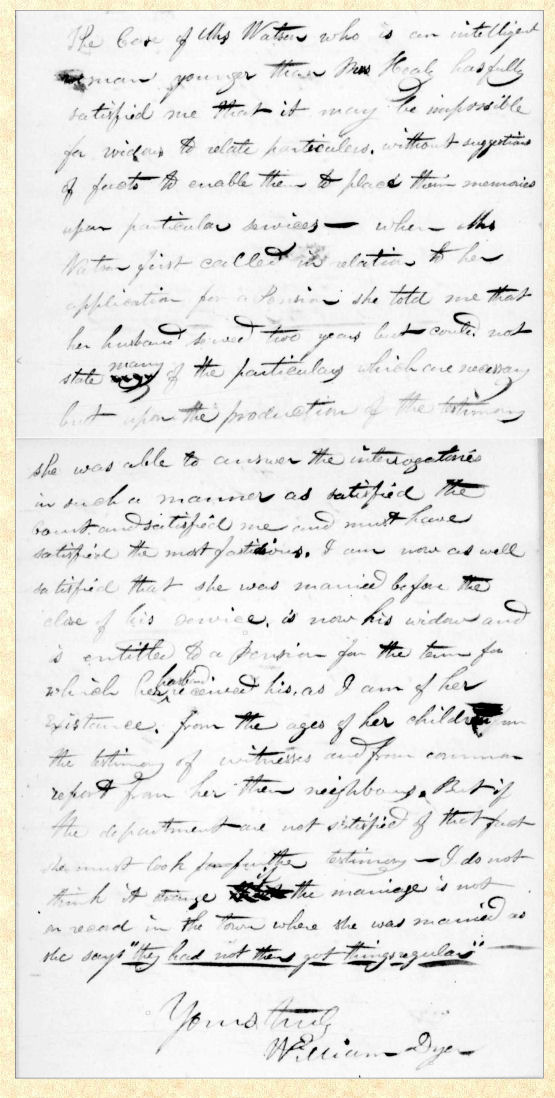 The Case of Mrs Watson who is an intelligent
woman younger than Mrs Healy has fully
satisfied me that it may be impossible
for widows to relate particulars, without suggestions
of facts to enable them to place their memories
upon particular services — when Mrs
Watson first called in relation to her
application for a Pension she told me that
her husband served two years but could not
state many of the particulars which are necessary
but upon the production of the testimony
she was able to answer the interrogatories
in such a manner as satisfied the
Court and satisfied me and must have
satisfied the most fastidious. I am now as well
satisfied that she was married before the
close of his service, is now his widow and
is entitled to a Pension for the term for
which her husband received his, as I am of her
existance. from the ages of her children from
the testimony of witnesses and from common
report from her then neighbours. But if
the department are not satisfied of that fact
she must look for further testimony — I do not
think it strange if the marriage is not
on record in the town where she was married as
she says "they had not then got things regular"
Yours truly
William Dyer